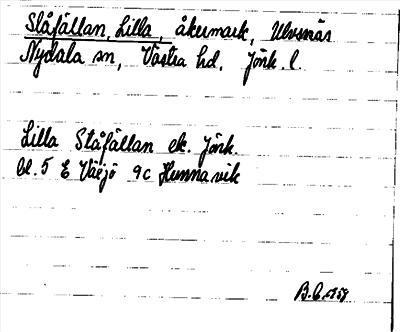 Slåfällan, Lilla, åkermark, Ulvsnäs
Nydala sn, Västra hd, Jönk. l.
Lilla Slåfällan ek. Jönk.
bl. 5 E Växjö 9c Hunnavik